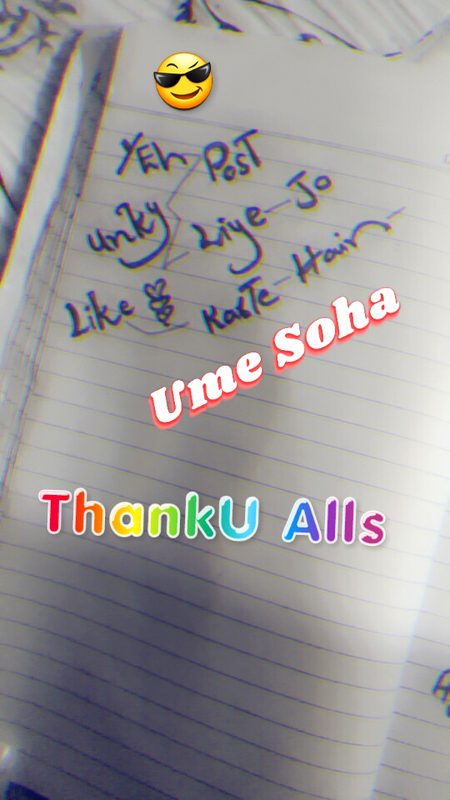 YEh Post
unky Liye Jo
Like Karte Hain
Ume Soha
ThankU Alls